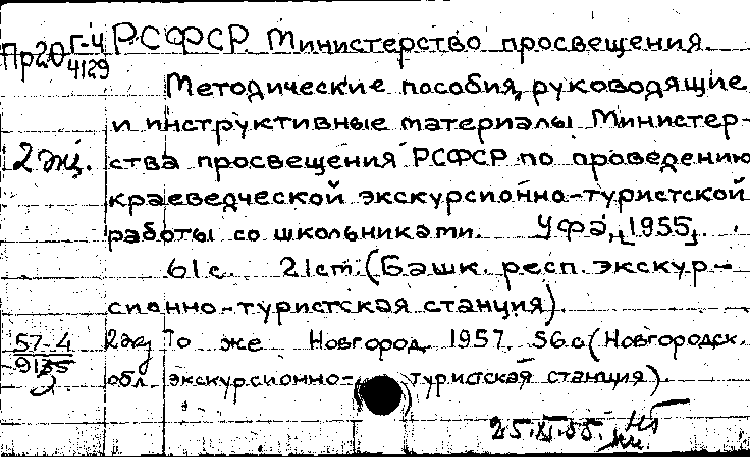 Пр20 Г-4 4129 РСФСР Министерство просвещения.
Методические пособия, руководящие
и инструктивные материалы Министер-
2 экз. ства просвещения РСФСР по проведению
краеведческой экскурсионно-туристской
работы со школьниками. Уфа, [1955].
61 с. 21 cm. (Башк. респ. экскур-
сионно-туристская станция).
57-4 2 экз То же Новгород. 1957. 56 с (Новгородск.
9135 обл. экскурсионно-туристская станция).
25.XI.55.